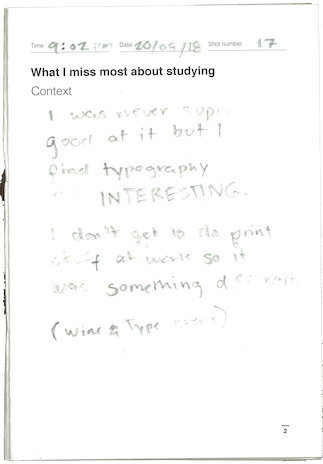 Time 9:02 pm Date 20/09/18 Shot number 17
What I miss most about studying
Context
I was never super
good at it but I
find typography
INTERESTING.
I don't get to do print
stuff at work so it
was something
(wine & Type
2